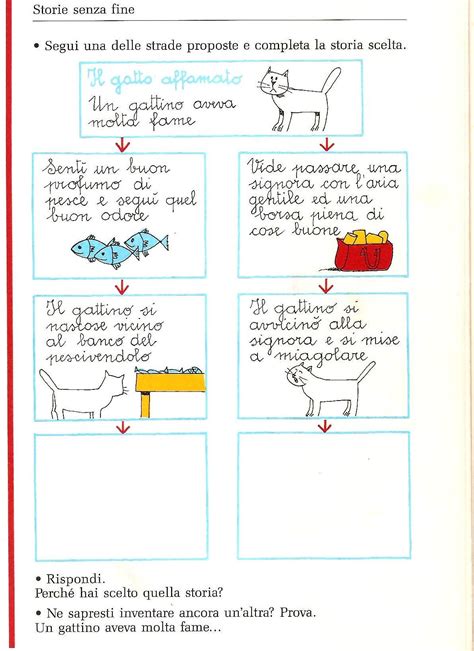 Storie senza fine
• Segui una delle strade proposte e completa la storia scelta.
Il gatto affamato
Un gattino aveva
molta fame
Sentì un buon
profumo di
pesce e seguì quel
buon odore
Vide passare una
signora con l'aria
gentile ed una
borsa piena di
cose buone
Il gattino si
nascose vicino
al banco del
pescivendolo
Il gattino si
avvicinò alla
signora e si mise
a miagolare
• Rispondi.
Perché hai scelto quella storia?
• Ne sapresti inventare ancora un'altra? Prova.
Un gattino aveva molta fame...